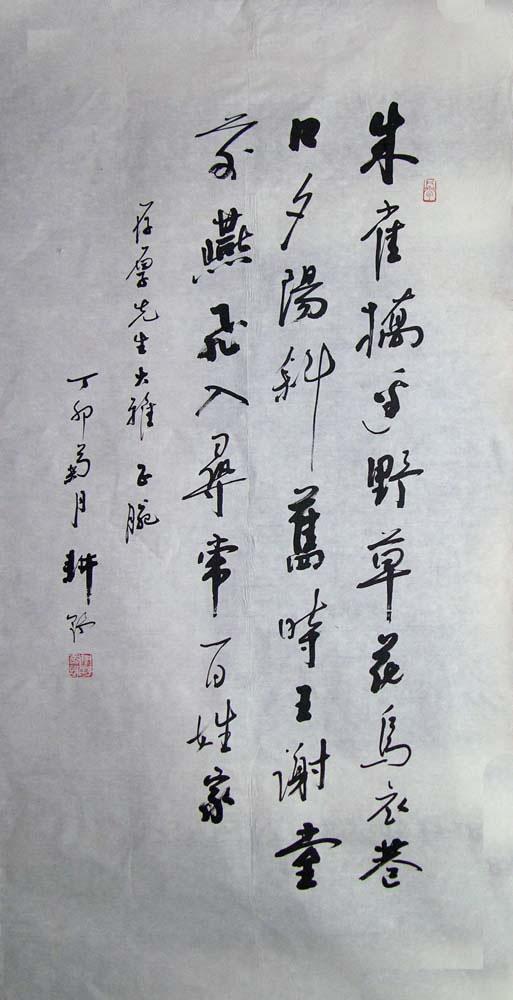 朱雀橋邊野草花烏衣巷
口夕陽斜舊時王謝堂
前燕飛入尋常百姓家
存厚先生大雅 正腕
丁卯菊月 耕